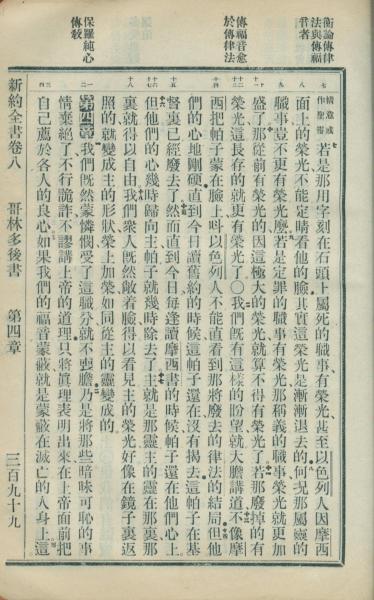 衡論傳律
法與傳福
音者
傳福音愈
於傳律法
保羅純心
傳敎
情意或作聖靈若是那用字刻在石頭上屬死的職事有榮光甚至以色列人因摩西
面上的榮光不能定睛看他的臉其實這榮光是漸漸退去的何況那屬靈的
職事豈不更有榮光麼若是定罪的職事有榮光那稱義的職事榮光就更加
盛了那從前有榮光的因這極大的榮光就算不得有榮光了若那廢掉的有
榮光這長存的就更有榮光了〇我們旣有這樣的盼望就大膽講道不像摩
西把帕子蒙在臉上呌以色列人不能直看到那將廢去的律法的結局但他
們的心地剛硬直到今日讀舊約的時候這帕子還在沒有揭去這帕子在基
督裏已經廢去了然而直到今日每逢讀摩西書的時候帕子還在他們心上
但他們的心幾時歸向主帕子就幾時除去了主就是那靈主的靈在那裏那
裏就得以自由我們衆人旣然敞着臉得以看見主的榮光好像在鏡子裏返
照的就變成主的形狀榮上加榮如同從主的靈變成的
第四章我們旣然蒙憐憫受了這職分就不喪膽乃是將那些暗昧可恥的事
情棄絕了不行詭詐不謬講上帝的道理只將眞理表明出來在上帝面前把
自己薦於各人的良心如果我們的福音蒙蔽就是蒙蔽在滅亡的人身上這
新約全書卷八 哥林多後書 第四章 三百九十九